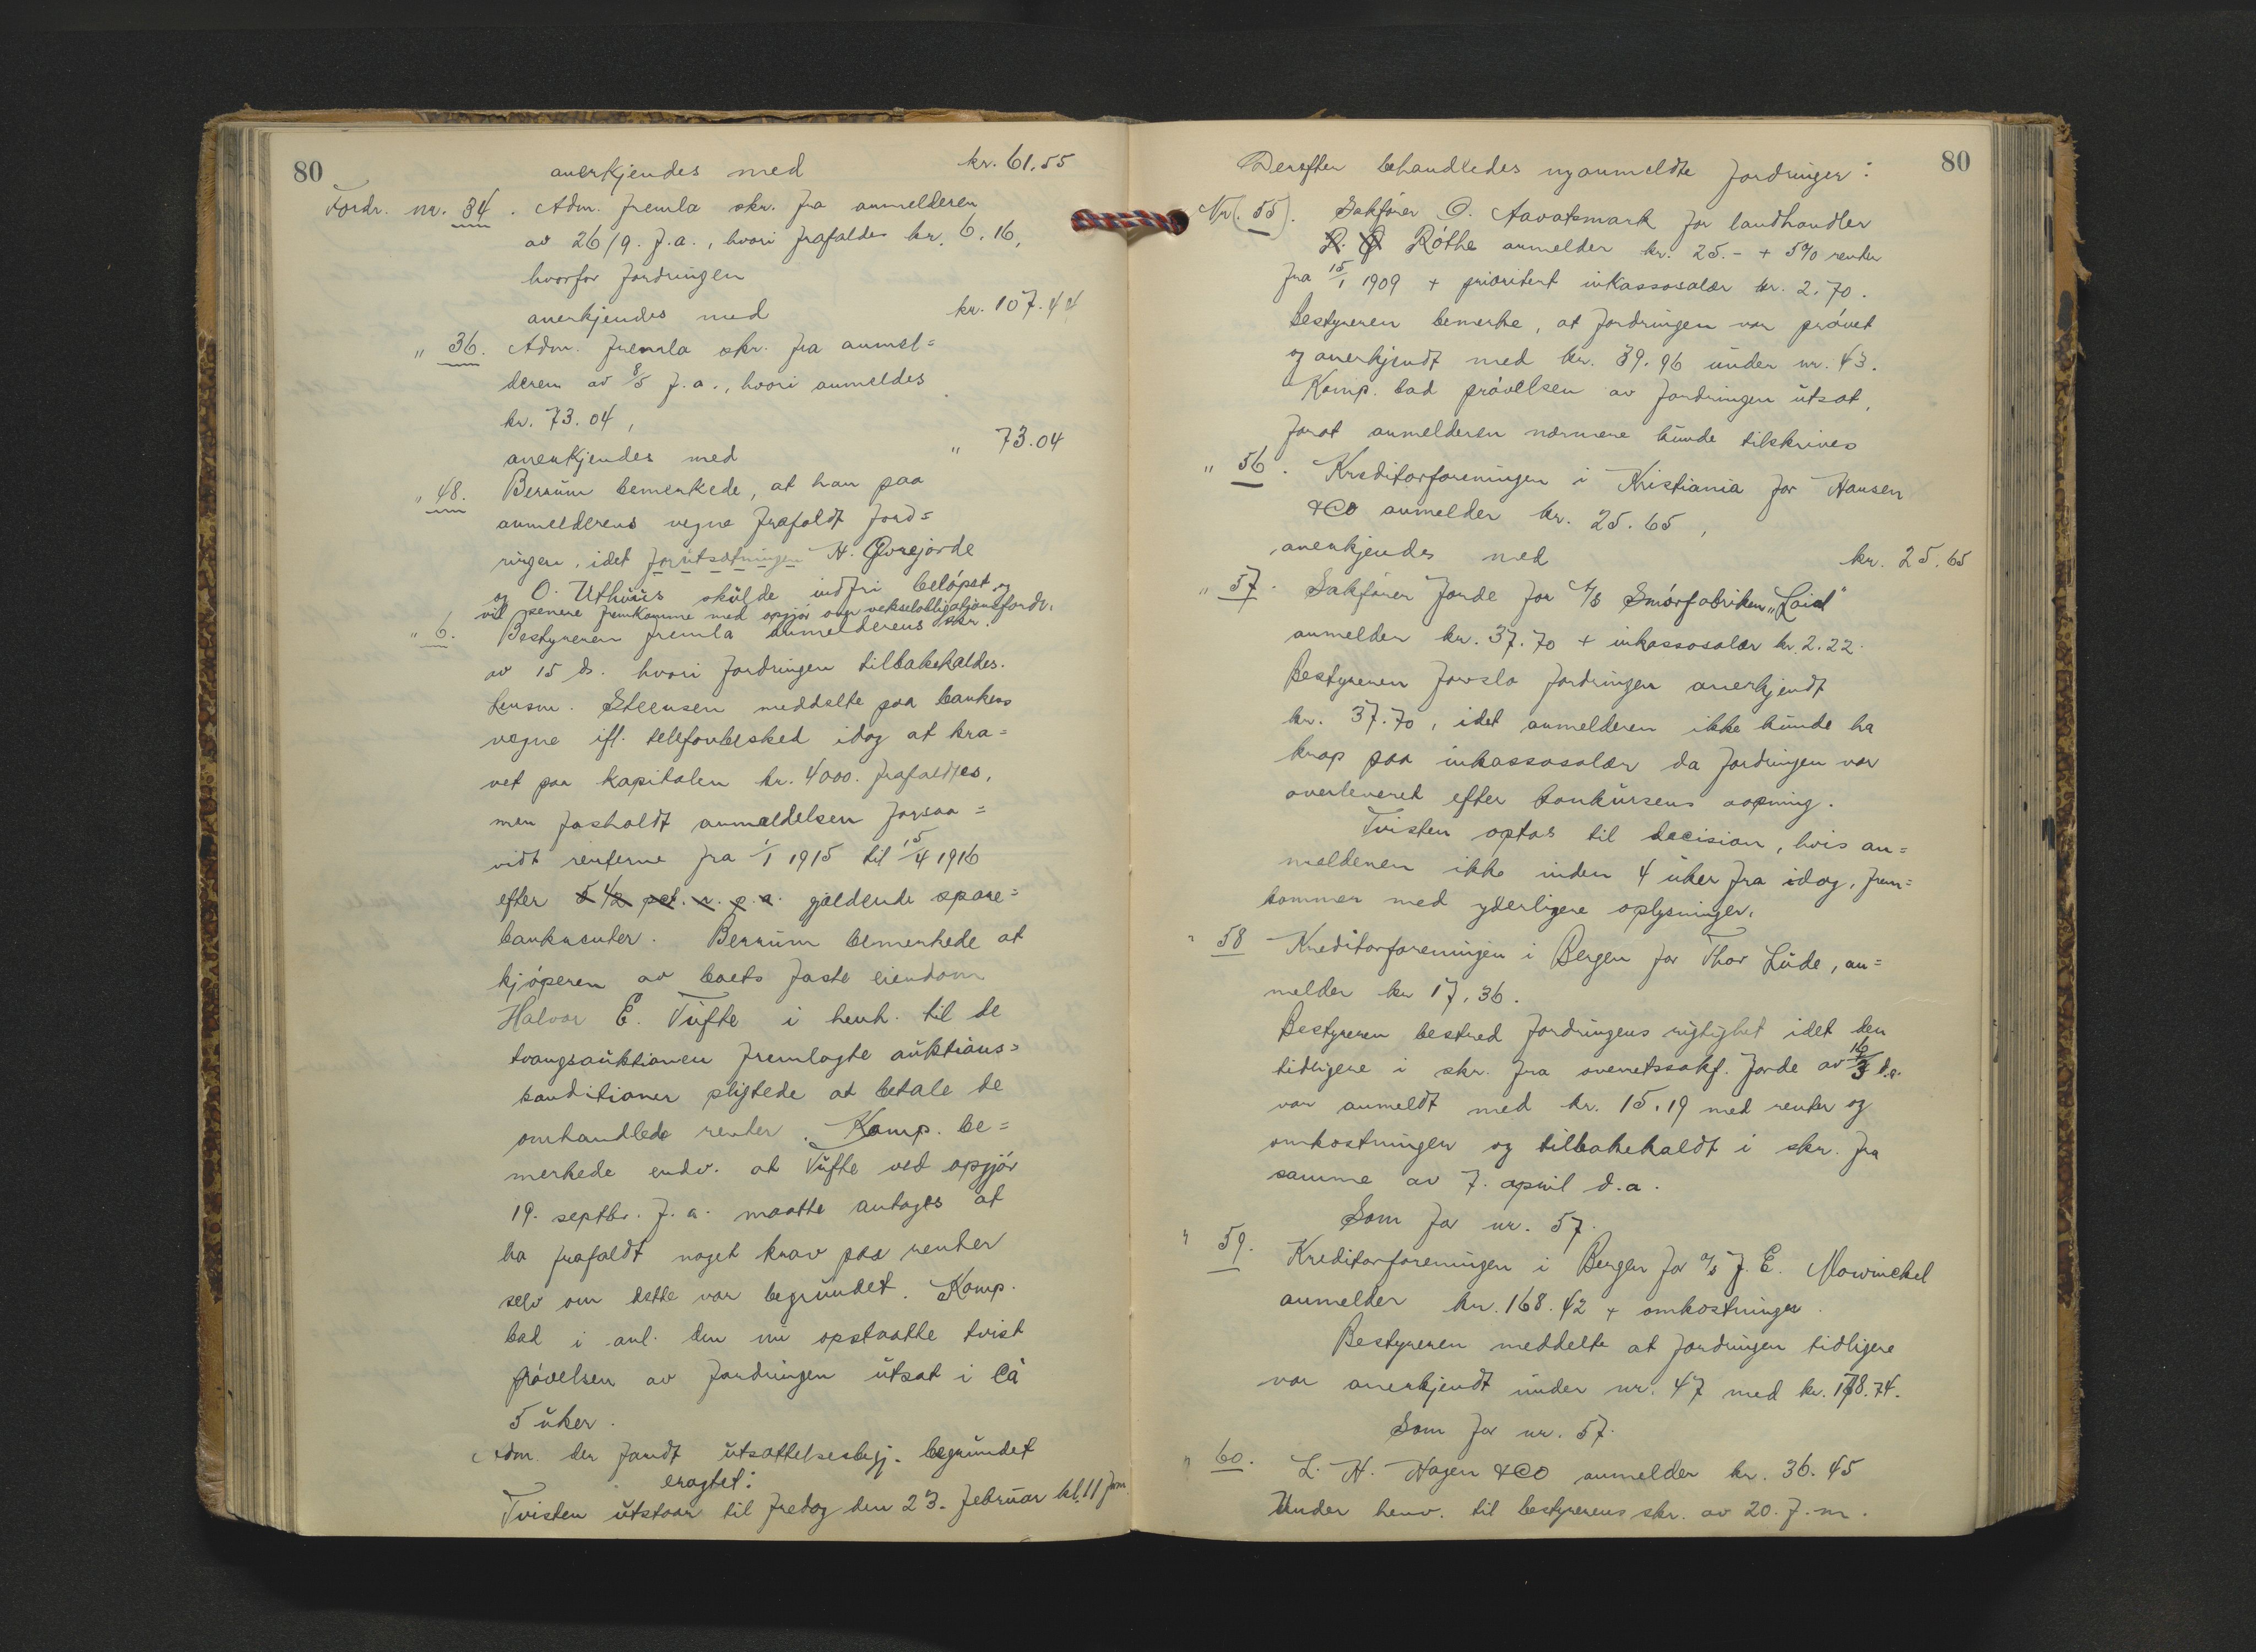 80
anerkjendes med kr. 61.55
Fordr. nr. 34. Adm. fremla skr. fra anmelderen
av 26/9. f.a., hvori frafaldes kr. 6.16,
hvorfor fordringen
anerkjendes med kr. 107.44
" 36. Adm. fremla skr. fra anmel=
deren av 8/5 f.a., hvori anmeldes
kr. 73.04,
anerkjendes med " 73.04
" 48. Berrum bemerkede, at han paa
anmelderens vegne frafaldt ford=
ringen, idet forutsætningen H. Qvrejorde
og O. Uthuus skulde indfri beløpet og
vil senere fremkomme med opgjør over vekselobligationsfordr.
" 6. Bestyreren fremla anmelderens skr.
av 15 ds. hvori fordringen tilbakekaldes.
Lensm. Steensen meddelte paa bankens
vegne ifl. telefonbesked idag at kra=
vet paa kapitalen kr. 4000. frafaldtes,
men fasholdt anmeldelsen forsaa=
vidt renterne fra 1/1 1915 til 15/4 1916
efter 5 1/2 pct. r. p. a. gjældende spare=
bankrenter. Berrum bemerkede at
kjøperen av boets faste eiendom
Halvor E. Tufte i henh. til de
tvangsauktionen fremlagte auktions=
konditioner pligtede at betale de
omhandlede renter. Komp. be=
merkede endv. at Tufte ved opgjør
19. septbr. f. a. maatte antages at
ha frafaldt noget krav paa renter
selv om dette var begrundet. Komp.
bad i anl. den nu opstaatte tvist
prøvelsen av fordringen utsat i ca
5 uker.
Adm. der fandt utsættelsesbegj. begrundet
eragtet:
Tvisten utstaar til fredag den 23. februar kl. 11 form.
80
Derefter behandledes nyanmeldte fordringer:
Nr. (55). Sakfører O. Aavatsmark for landhandler
Røthe anmelder kr. 25.- + 5% renter
fra 15/1 1909 + prioritert inkassosalær kr. 2.70.
Bestyreren bemerke, at fordringen var prøvet
og anerkjendt med kr. 39.96 under nr. 43.
Komp. bad prøvelsen av fordringen utsat,
forat anmelderen nærmere kunde tilskrives
" 56. Kreditorforeningen i Kristiania for Hansen
& Co anmelder kr. 25.65,
anerkjendes med kr. 25.65
" 57. Sakfører Forde for A/S Smørfabriken "Loid"
anmelder kr. 37.70 + inkassosalær kr. 2.22.
Bestyreren foreslo fordringen anerkjendt
kr. 37.70, idet anmelderen ikke kunde ha
krap paa inkassosalær da fordringen var
overleveret efter konkursens aapning.
Tvisten optas til decision, hvis an=
melderen ikke inden 4 uker fra idag, frem=
kommer med yderligere oplysninger.
" 58 Kreditorforeningen i Bergen for Thor Lude, an=
melder kr 17,36.
Bestyreren bestred fordringens rigtighet idet den
tidligere i skr. fra overretssakf. Forde av 16/3 d.a.
var anmeldt med kr. 15.19 med renter og
omkostninger og tilbakekaldt i skr. fra
samme av 7. april d.a.
Som for nr. 57.
" 59. Kreditorforeningen i Bergen for A/S J. E. Mowinckel
anmelder kr. 168.42 + omkostninger.
Bestyreren meddelte at fordringen tidligere
var anerkjendt under nr. 47 med kr. 178.74.
Som for nr. 57.
" 60. L. H. Hagen & Co anmelder kr. 36.45
Under henv. til bestyrerens skr. av 20. f. m.